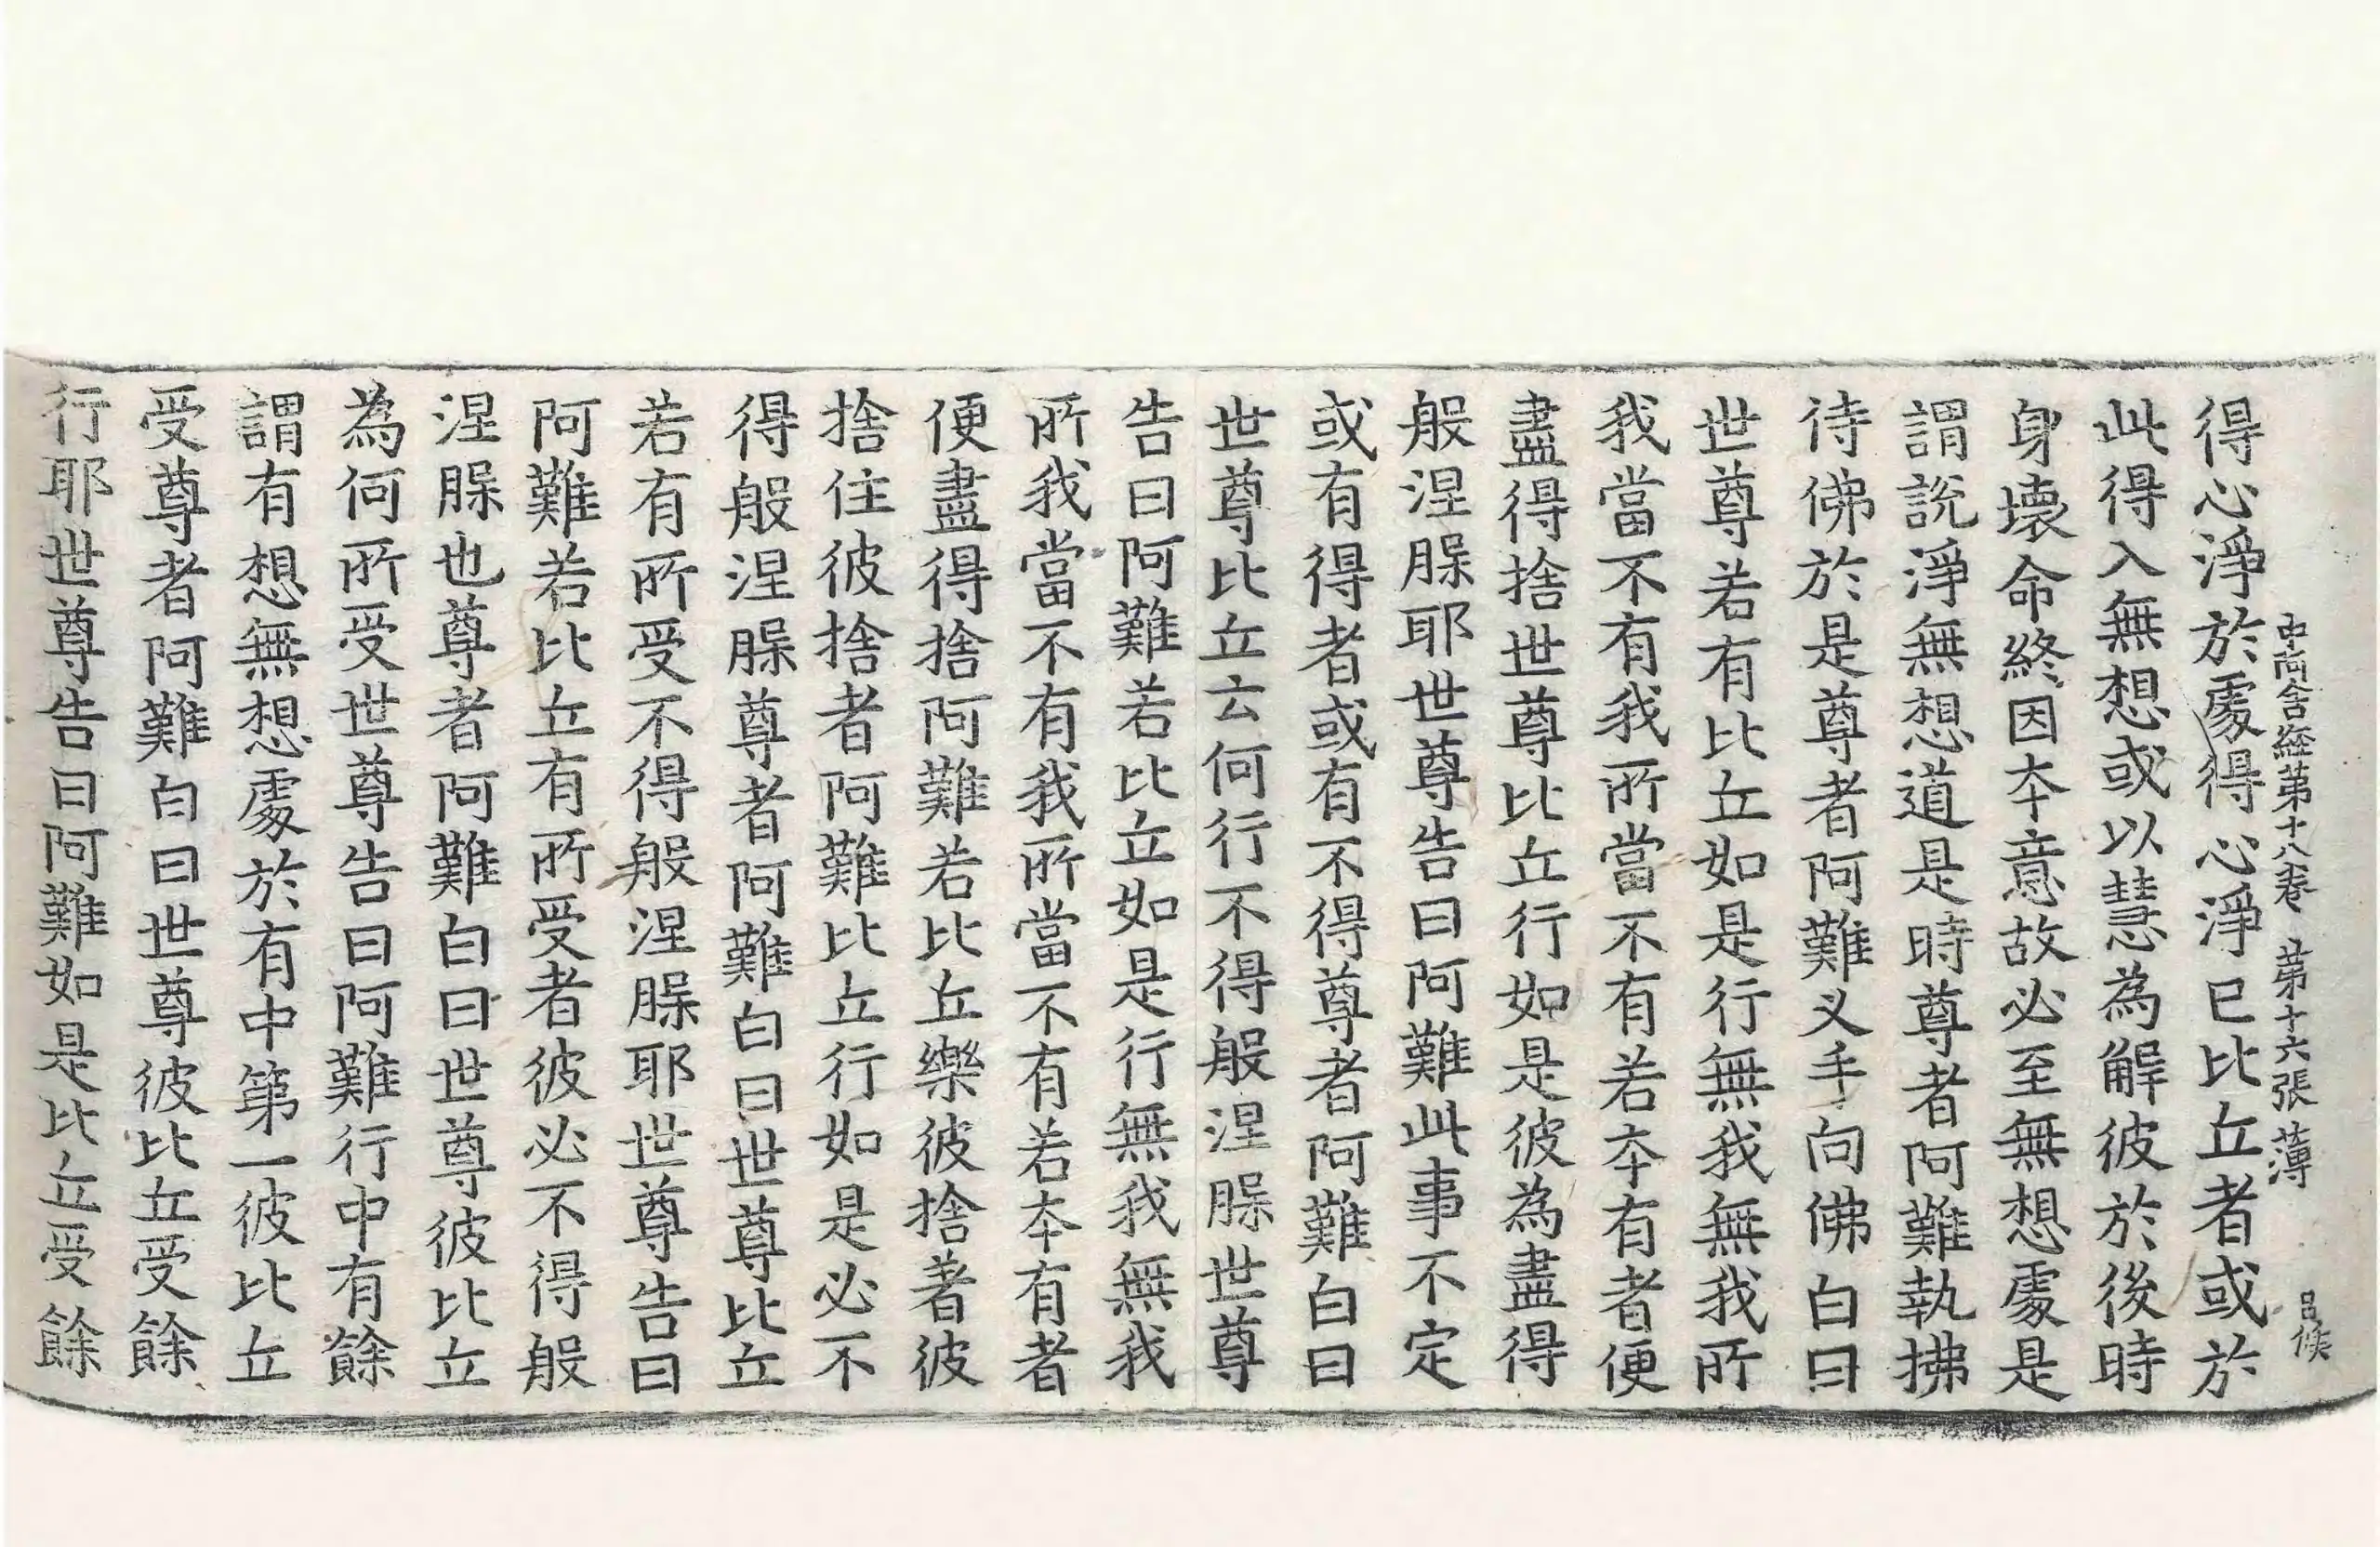 中阿含経第十八卷 第十六張 薄 吕俟
得心淨於處得心淨已比丘者或於
此得入無想或以慧為解彼於後時
身壞命終因本意故必至無想處是
謂說淨無想道是時尊者阿難執拂
待佛於是尊者阿難叉手向佛白曰
世尊若有比丘如是行無我無我所
我當不有我所當不有若本有者便
盡得捨世尊比丘行如是彼為盡得
般涅槃耶世尊告曰阿難此事不定
或有得者或有不得尊者阿難白曰
世尊比丘云何行不得般涅槃世尊
告曰阿難若比丘如是行無我無我
所我當不有我所當不有若本有者
便盡得捨阿難若比丘樂彼捨著彼
捨住彼捨者阿難比丘行如是必不
得般涅槃尊者阿難白曰世尊比丘
若有所受不得般涅槃耶世尊告曰
阿難若比丘有所受者彼必不得般
涅槃也尊者阿難白曰世尊彼比丘
為何所受世尊告曰阿難行中有餘
謂有想無想處於有中第一彼比丘
受尊者阿難白曰世尊彼比丘受餘
行耶世尊告曰阿難如是比丘受餘